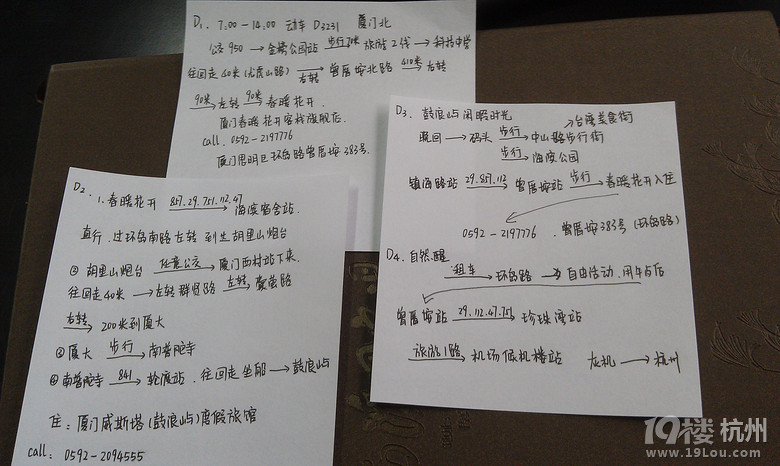 D1. 7:00-14:00 动车 D3231 厦门北
公交950 → 金榜公园站 步行 → 旅游2线 → 科技中学
往回走40米 (尤厝山路) 右转 → 曾厝垵北路 410米 → 右转
90米 → 左转 90米 → 春暖花开.
厦门春暖花开客栈旗舰店.
call. 0592-2197776
厦门思明区环岛路曾厝垵383号.
D2. 1. 春暖花开 857.29.751.112.47 → 海滨宿舍站.
直行.过环岛南路左转 到达胡里山炮台
② 胡里山炮台 任意公交 → 厦门西村站下来.
往回走40米 → 左转群贤路 左转 → 蒙茵路
右转 → 200米到厦大
③ 厦大 步行 → 南普陀寺
④ 南普陀寺 841 → 轮渡站. 往回走 坐船 → 鼓浪屿
住: 厦门威斯塔(鼓浪屿)度假旅馆
call: 0592-2094555
D3. 鼓浪屿闲暇时光 → 台湾美食街
晚回 → 码头 步行 → 中山路步行街
步行 → 海滨公园
镇海路站 29.857.112 → 曾厝垵站 步行 → 春暖花开入住
0592-2197776. 曾厝垵383号(环岛路)
D4. 自然醒
租车 → 环岛路 → 自由活动.用午后
曾厝垵站 29.112.47.751 → 珍珠湾站
旅游1路 → 机场候机楼站 灰机 → 杭州
19楼 杭州
www.19Lou.com